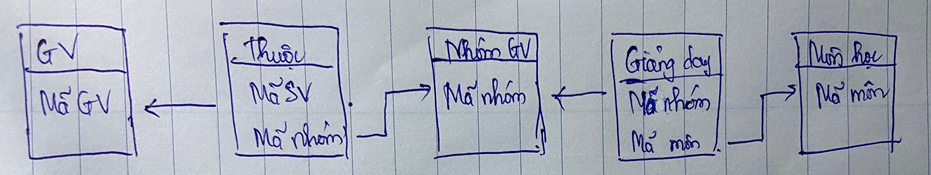 GV
Mã GV
Thuộc
Mã SV
Mã nhóm
Nhóm GV
Mã nhóm
Giảng dạy
Mã nhóm
Mã môn
Môn học
Mã môn